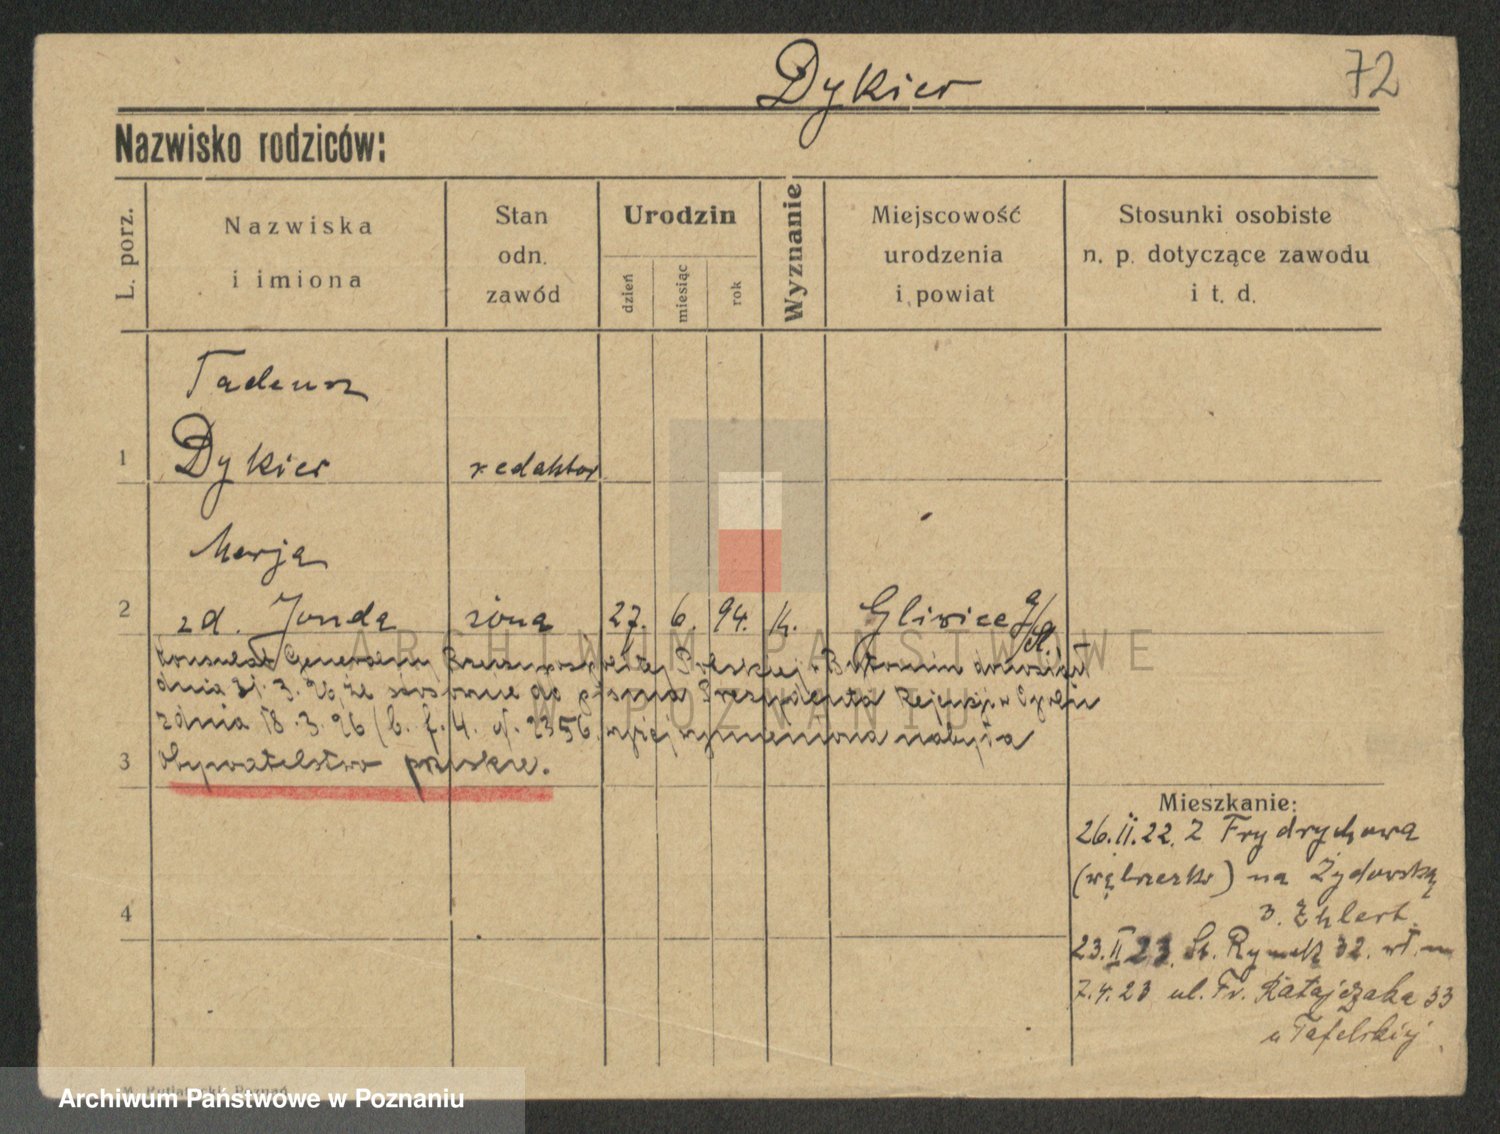 Dykier
72
Nazwisko rodziców:
L. porz.
Nazwiska
i imiona
Stan
odn.
zawód
Urodzin
dzień
miesiąc
rok
Wyznanie
Miejscowość
urodzenia
i powiat
Stosunki osobiste
n. p. dotyczące zawodu
i t. d.
Tadeusz
1 Dykier redaktor
Marja
2 zd. Jonda żona 27. 6. 94. k. Gliwice
Konsulat Generalny Rzeczypospolitej Polskiej w Bytomiu
dnia 31.3.26 że stosownie do pisma Prezydenta Rejencji w Opolu
z dnia 18.3.26 (b. f. 4. 2356. wyżej wymieniona nabyła
3 obywatelstwo pruskie.
Mieszkanie:
26.II.22. Z Frydrychowa
(wąbrzesko) na Żydowską
3. Ehlert
4
23.II 23. St. Rynek 32.
7.4.23 ul. Fr. Ratajczaka 33
u Tafelskiej
ARCHIWUM PAŃSTWOWE
W POZNANIU
Poznań
Archiwum Państwowe w Poznaniu